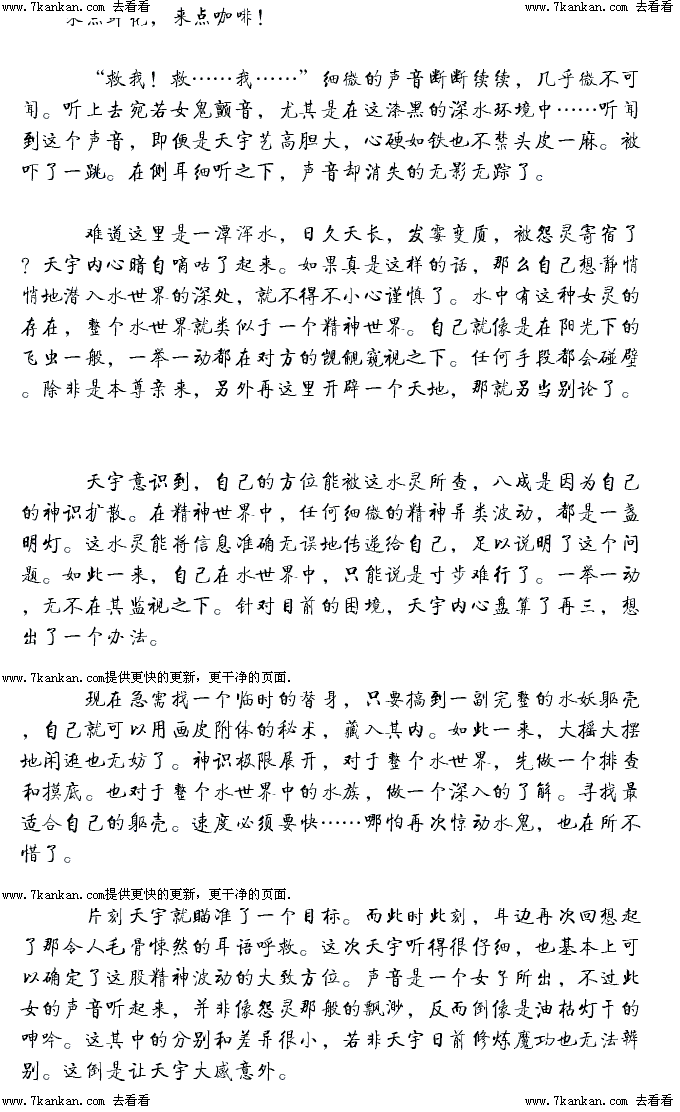 www.7kankan.com 去看看 www.7kankan.com 去看看
来点鲜花，来点咖啡！
“救我！救……我……”细微的声音断断续续，几乎微不可
闻。听上去宛若女鬼颤音，尤其是在这漆黑的深水环境中……听闻
到这个声音，即便是天宇艺高胆大，心硬如铁也不禁头皮一麻。被
吓了一跳。在侧耳细听之下，声音却消失的无影无踪了。
难道这里是一潭浑水，日久天长，发霉变质，被怨灵寄宿了
？天宇内心暗自嘀咕了起来。如果真是这样的话，那么自己想静悄
悄地潜入水世界的深处，就不得不小心谨慎了。水中有这种女灵的
存在，整个水世界就类似于一个精神世界。自己就像是在阳光下的
飞虫一般，一举一动都在对方的觊觎窥视之下。任何手段都会碰壁
。除非是本尊亲来，另外再这里开辟一个天地，那就另当别论了。
天宇意识到，自己的方位能被这水灵所查，八成是因为自己
的神识扩散。在精神世界中，任何细微的精神异类波动，都是一盏
明灯。这水灵能将信息准确无误地传递给自己，足以说明了这个问
题。如此一来，自己在水世界中，只能说是寸步难行了。一举一动
，无不在其监视之下。针对目前的困境，天宇内心盘算了再三，想
出了一个办法。
www.7kankan.com提供更快的更新，更干净的页面.
现在急需找一个临时的替身，只要搞到一副完整的水妖躯壳
，自己就可以用画皮附体的秘术，藏入其内。如此一来，大摇大摆
地闲逛也无妨了。神识极限展开，对于整个水世界，先做一个排查
和摸底。也对于整个水世界中的水族，做一个深入的了解。寻找最
适合自己的躯壳。速度必须要快……哪怕再次惊动水鬼，也在所不
惜了。
www.7kankan.com提供更快的更新，更干净的页面.
片刻天宇就瞄准了一个目标。而此时此刻，耳边再次回想起
了那令人毛骨悚然的耳语呼救。这次天宇听得很仔细，也基本上可
以确定了这股精神波动的大致方位。声音是一个女子所出，不过此
女的声音听起来，并非像怨灵那般的飘渺，反而倒像是油枯灯干的
呻吟。这其中的分别和差异很小，若非天宇日前修炼魔功也无法辨
别。这倒是让天宇大感意外。
www.7kankan.com 去看看 www.7kankan.com 去看看